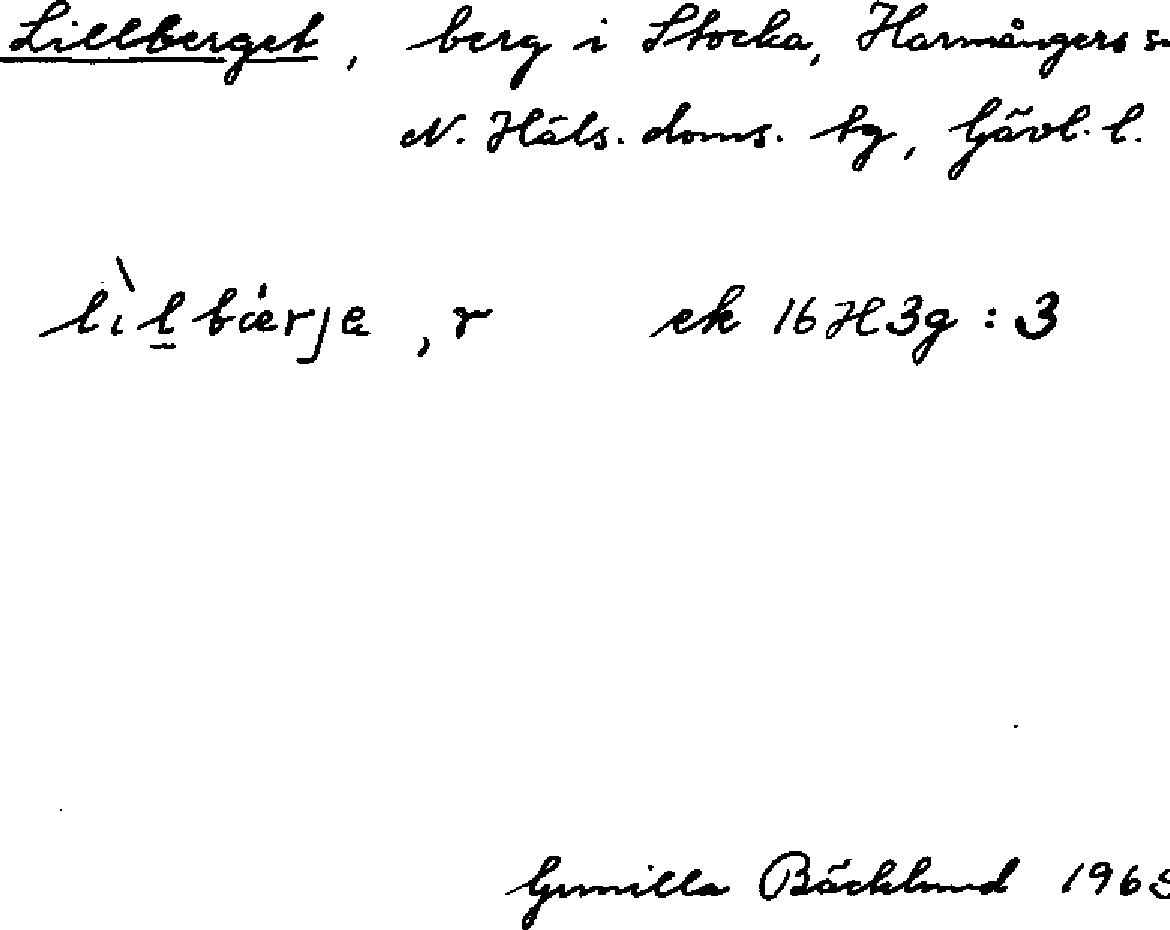 Lillberget, berg i Stocka, Harmångers s
N. Häls. doms. tg, Gävl. l.
lìlbærja, r ek 16H3g:3
Gunilla Bäcklund 1965